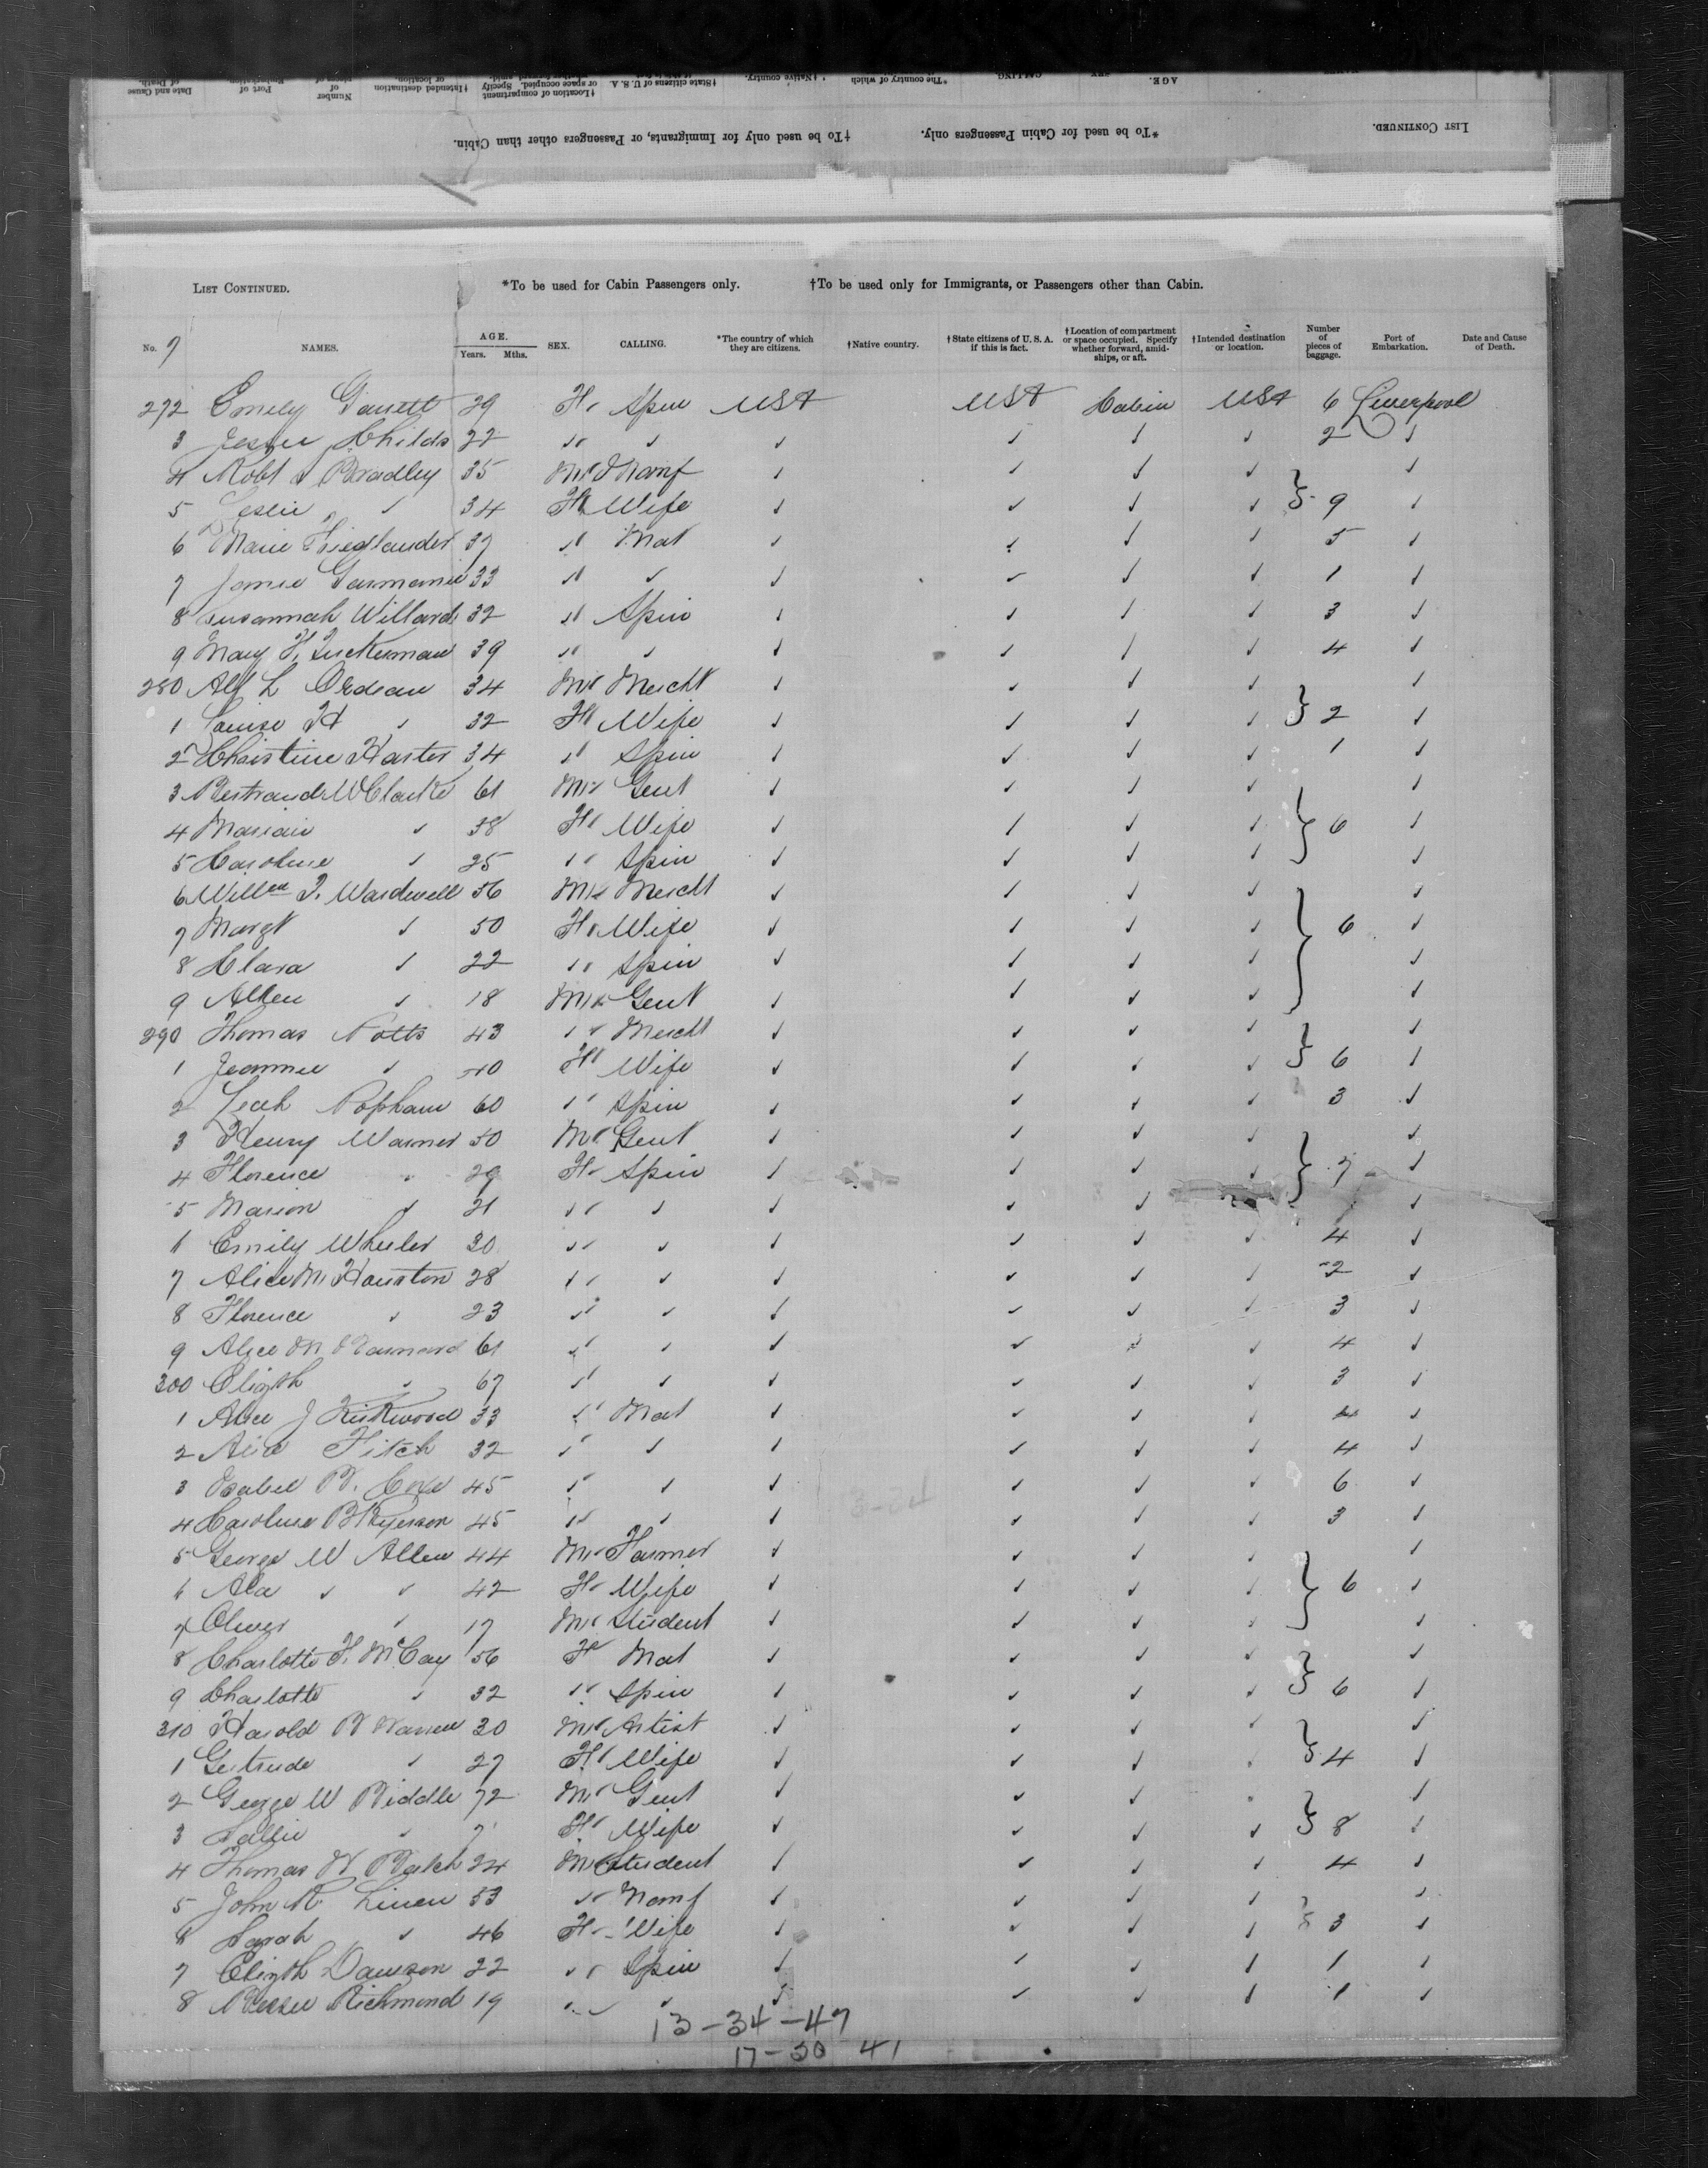 *To be used for Cabin Passengers only. †To be used only for Immigrants, or Passengers other than Cabin.
LIST CONTINUED.
LIST CONTINUED. *To be used for Cabin Passengers only. †To be used only for Immigrants, or Passengers other than Cabin.
No. 7 NAMES. AGE. Years. Mths. SEX. CALLING. *The country of which they are citizens. †Native country. †State citizens of U. S. A. if this is fact. †Location of compartment or space occupied. Specify whether forward, amidships, or aft. †Intended destination or location. Number of pieces of baggage. Port of Embarkation. Date and Cause of Death.
272 Emily Garrett 29 F " Spin USA USA Cabin USA 6 Liverpool
3 Jessie Childs 22 " " " " " " " 2 "
4 Robt S Bradley 35 M " Manf " " " " "
5 Leslie " " 34 F " Wife " " " " 9 "
6 Marie Friedlander 37 " " Mat " " " " 5 "
7 33 " " " " " " " 1 "
8 Susannah Willard 32 " " Spin " " " " 3 "
9 Mary F. Tuckerman 39 " " " " " " " 4 "
280 Alf L Ordean 34 M " Mercht " " " " "
1 Louise H " 32 F " Wife " " " " 2 "
2 Christine Harter 34 " " Spin " " " " 1 "
3 Bertrand W Clarke 61 M " Gent " " " " "
4 Marian " 38 F " Wife " " " " 6 "
5 Caroline " 25 " " Spin " " " " "
6 Willm T. Wardwell 56 M " Mercht " " " " "
7 Margt " 50 F " Wife " " " " 6 "
8 Clara " 22 " " Spin " " " " "
9 Allen " 18 M " Gent " " " " "
290 Thomas Potts 43 " " Mercht " " " " "
1 Jeannie " 40 F " Wife " " " " 6 "
2 Leah Popham 60 " " Spin " " " " 3 "
3 Henry Warner 50 M " Gent " " " " "
4 Florence " 29 F " Spin " " " " 7 "
5 Marion " 21 " " " " " " " "
6 Emily Wheeler 30 " " " " " " " 4 "
7 Alice M Houston 28 " " " " " " " 2 "
8 Florence " 23 " " " " " " " 3 "
9 Alice M Barnard 61 " " " " " " " 4 "
300 Elizth " 67 " " " " " " " 3 "
1 Alice J Kirkwood 33 " " Mat " " " " 4 "
2 Fitch 32 " " " " " " " 4 "
3 Isabel B. Coxe 45 " " " " " " " 6 "
4 Caroline B Ryerson 45 " " " " " " " 3 "
5 George W Allen 44 M " Farmer " " " " "
6 Ada " " 42 F " Wife " " " " 6 "
7 Oliver " 17 M " Student " " " " "
8 Charlotte F. McCay 56 F Mat " " " " "
9 Charlotte " 32 " " Spin " " " " 6 "
310 Harold B Warren 30 M " Artist " " " " "
1 Gertrude " 27 F " Wife " " " " 4 "
2 George W Biddle 72 M " Gent " " " " "
3 Sallie " F " Wife " " " " 8 "
4 Thomas W Balch 24 M " Student " " " " 4 "
5 John R Linen 53 " " Manf " " " " "
6 Sarah " 46 F " Wife " " " " 3 "
7 Elizth Dawson 22 " " Spin " " " " 1 "
8 Bessie Richmond 19 " " " " " " " 1 "
13-34-47
17-30 41